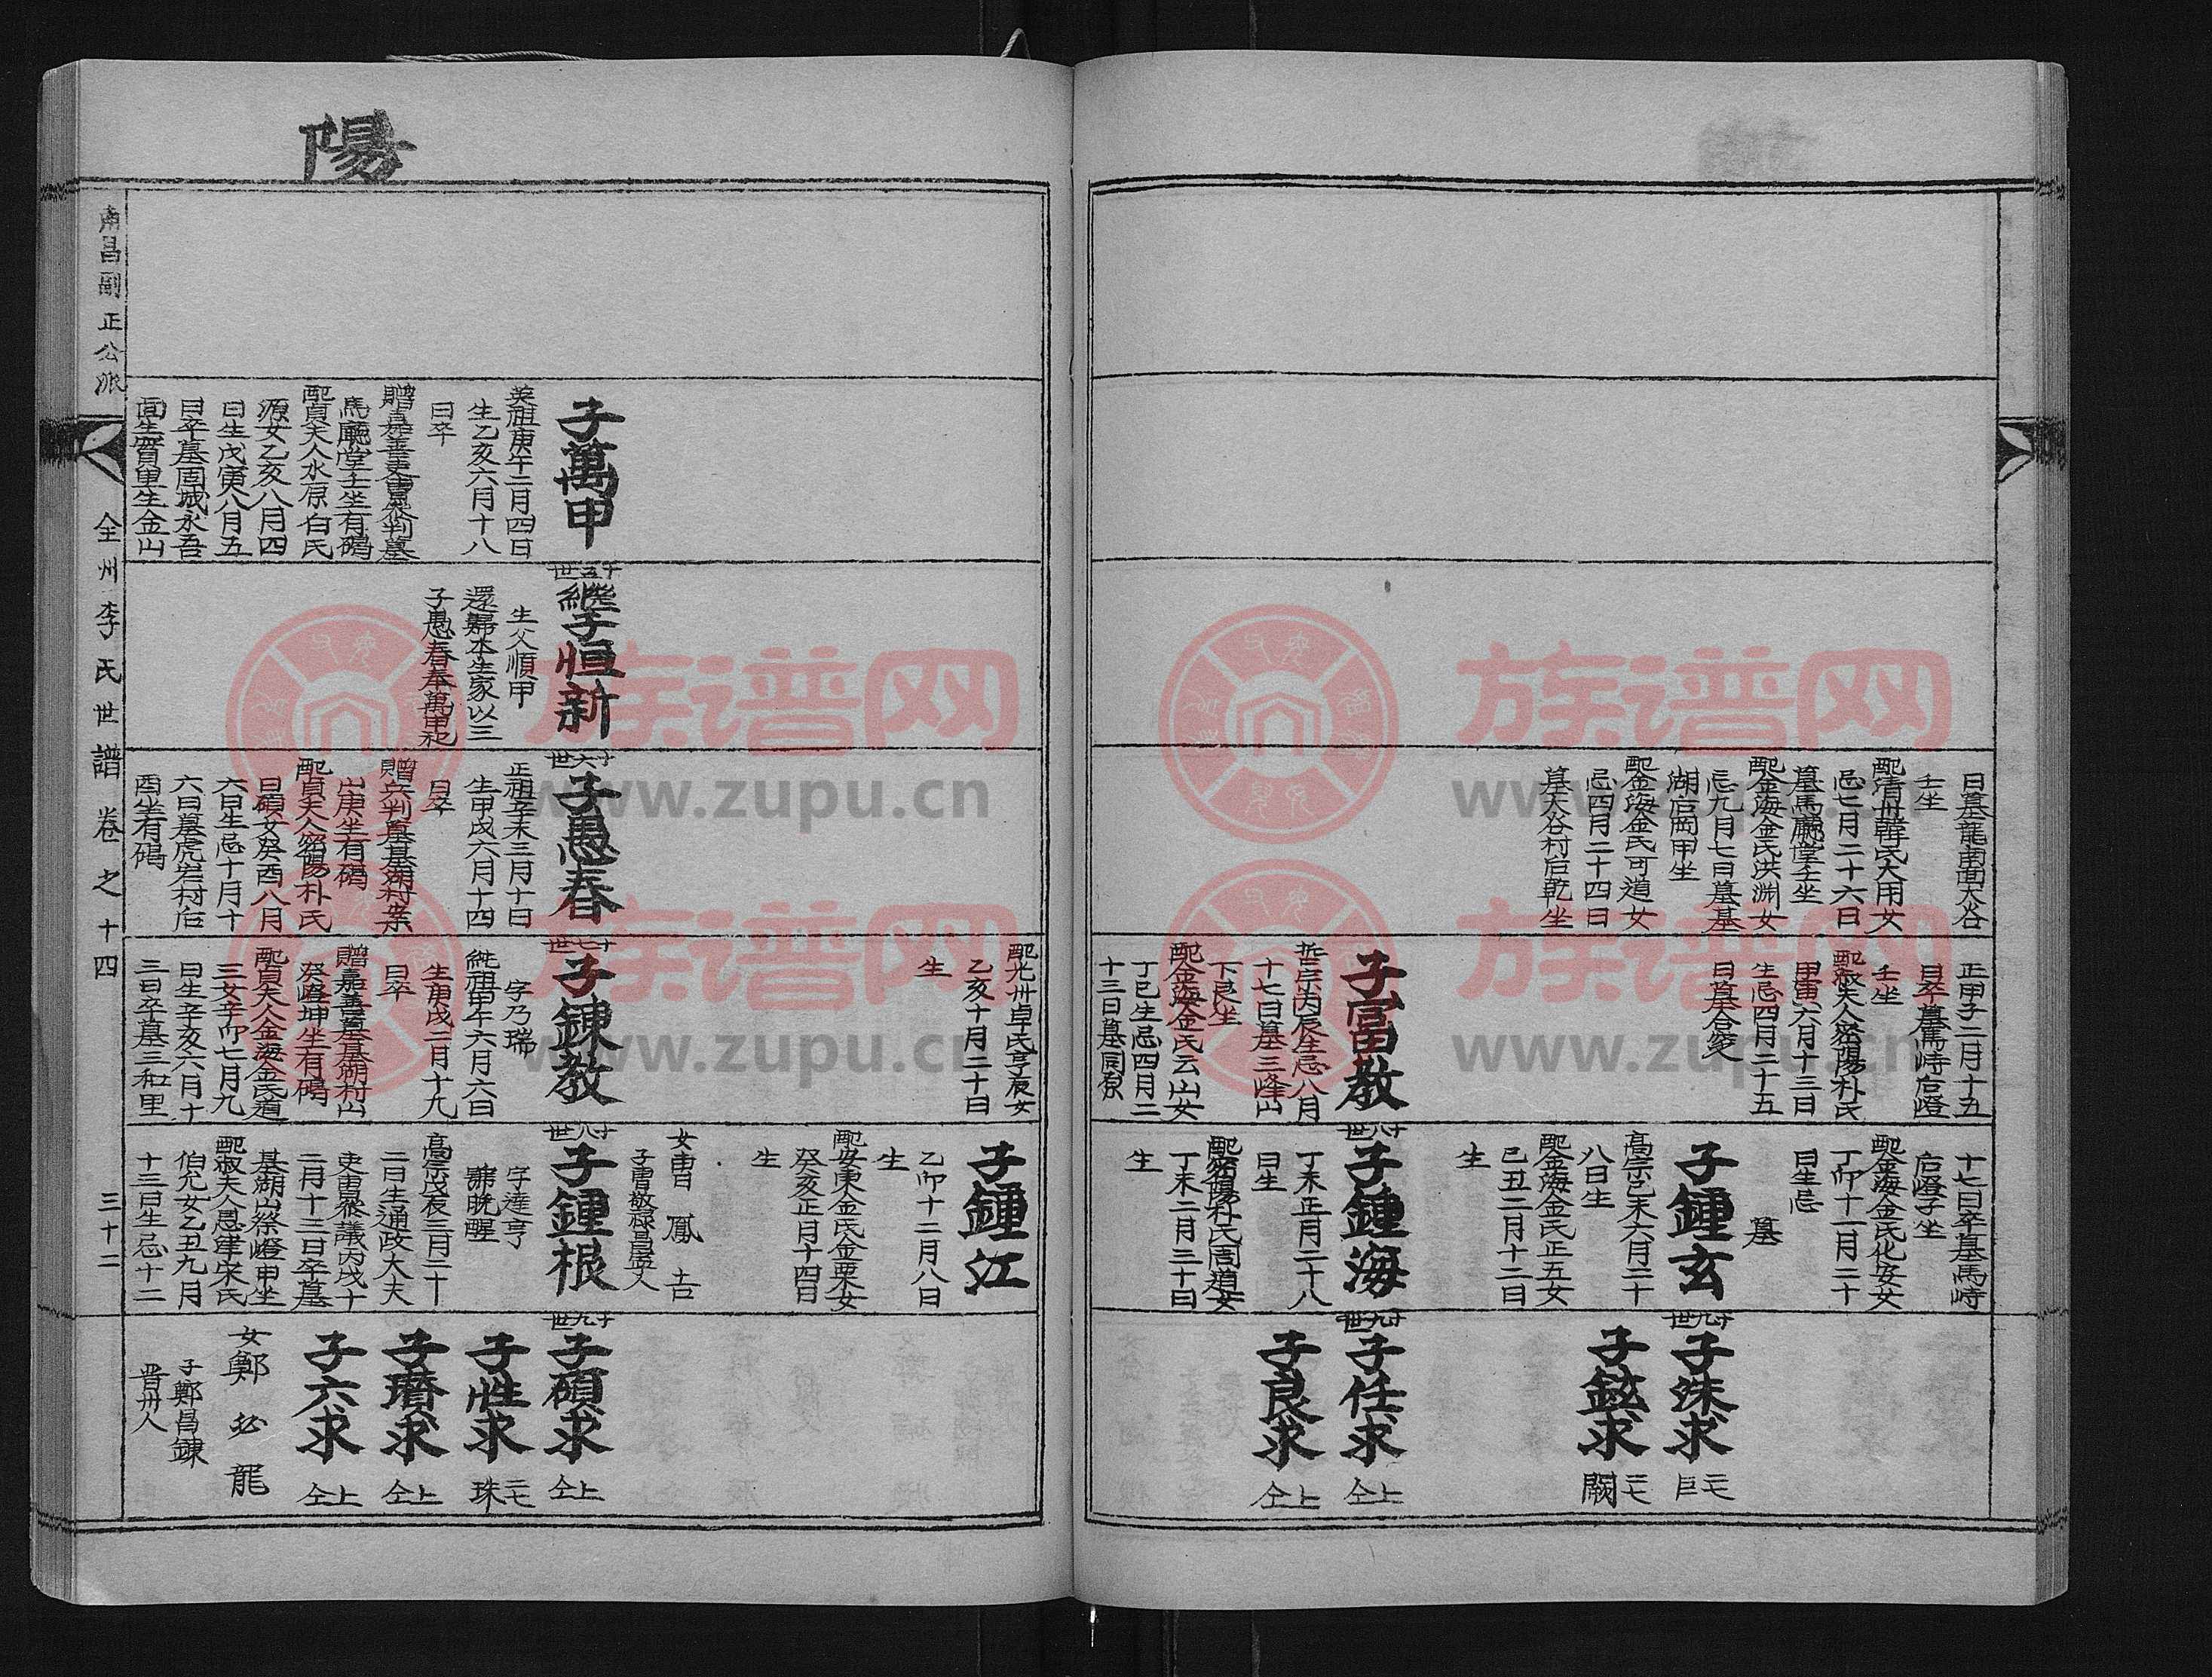 日墓龍南面大谷
壬坐
配清州韓氏大用女
忌七月二十六日
墓馬廳堂壬坐
配金海金氏洪淵女
忌九月七日墓基
湖后岡甲坐
配金海金氏可道女
忌四月二十四日
墓大谷村后乾坐
正甲子二月十五
日卒墓馬峙后嶝
壬坐
配淑夫人密陽朴氏
甲寅六月十三日
生忌四月二十五
日墓合窆
子富教
哲宗丙辰生忌八月
十七日墓三峰山
下艮坐
配金海金氏云山女
丁巳生忌四月二
十三日墓同原
十七日卒墓馬峙
后嶝子坐
配金海金氏化安女
丁卯十一月二十
日生忌
墓
子鍾玄
高宗己未六月二十
八日生
配金海金氏正五女
己丑二月十二日
生
十八世
子鍾海
丁未正月二十八
日生
配密陽朴氏周道女
丁未二月三十日
生
十九世
子洙求
二七
巨
子鉉求
二七
闕
十九世
子任求
上仝
子良求
上仝
陽
子萬甲
英祖庚午二月四日
生乙亥六月十八
日卒
贈嘉善吏曹參判墓
馬廳堂壬坐有碣
配貞夫人水原白氏
源女乙亥八月四
日生戊寅八月五
日卒墓固城永吾
面生實里生金山
十五世
繼子恒新
生父順甲
還歸本生家以三
子愚春奉萬甲祀
十六世
子愚春
正祖辛未三月十日
生甲戌六月十四
日卒
贈兵判墓基湖村案
山庚坐有碣
配貞夫人密陽朴氏
日碩女癸酉八月
六日生忌十月十
六日墓虎岩村后
酉坐有碣
配光州卓氏亨辰女
乙亥十月二十日
生
十七世
子鍊教
字乃瑞
純祖甲午六月六日
生庚戌二月十九
日卒
贈嘉善墓基湖村山
癸嶝坤坐有碣
配貞夫人金海金氏道
三女辛卯七月九
日生辛亥六月十
三日卒墓三和里
子鍾江
乙卯十二月八日
生
配安東金氏金栗女
癸亥正月十四日
生
女曺鳳吉
子曺敬祿昌寧人
十八世
子鍾根
字達亨
號晩醒
高宗戊辰三月二十
二日生通政大夫
吏曹參議丙戌十
二月十三日卒墓
基湖山祭嶝甲坐
配淑夫人恩津宋氏
伯允女乙丑九月
十三日生忌十二
十九世
子碩求
上仝
子性求
二七
珠
子璿求
上仝
子六求
上仝
女鄭必龍
子鄭昌鍊
晋州人
南昌副正公派
全州李氏世譜卷之十四
三十二
族谱网
www.zupu.cn
族谱网
www.zupu.cn
族谱网
www.zupu.cn
族谱网
www.zupu.cn